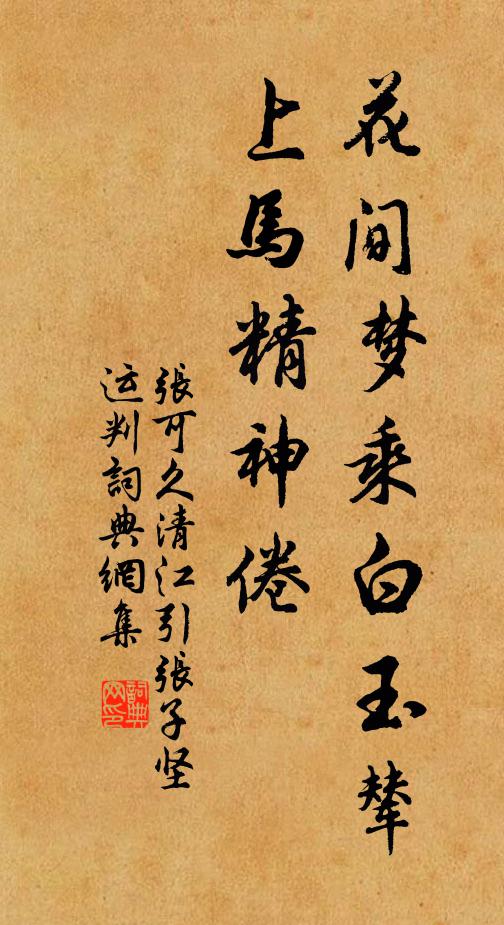 花间梦乘白玉辇
上馬精神倦
張可久清江引張子坚
运判詞典網集
詞典网印